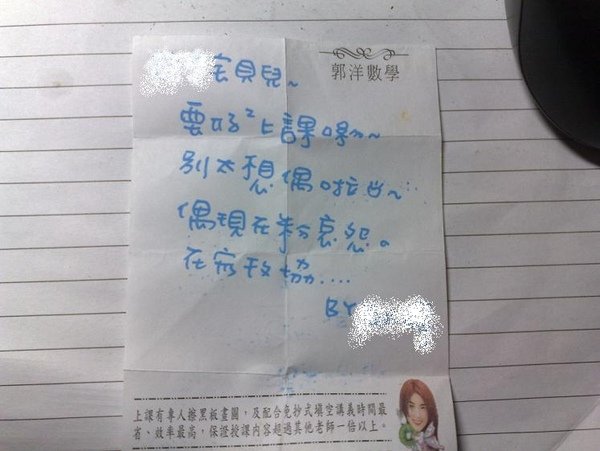 郭洋數學
貝兒~
要好²上課呦~
別太想偶啦~
偶現在粉哀怨。
在政協....
BY
上課有專人擦黑板畫圖，及配合免抄式填空講義時間最
省、效率最高，保證授課內容超過其他老師一倍以上。